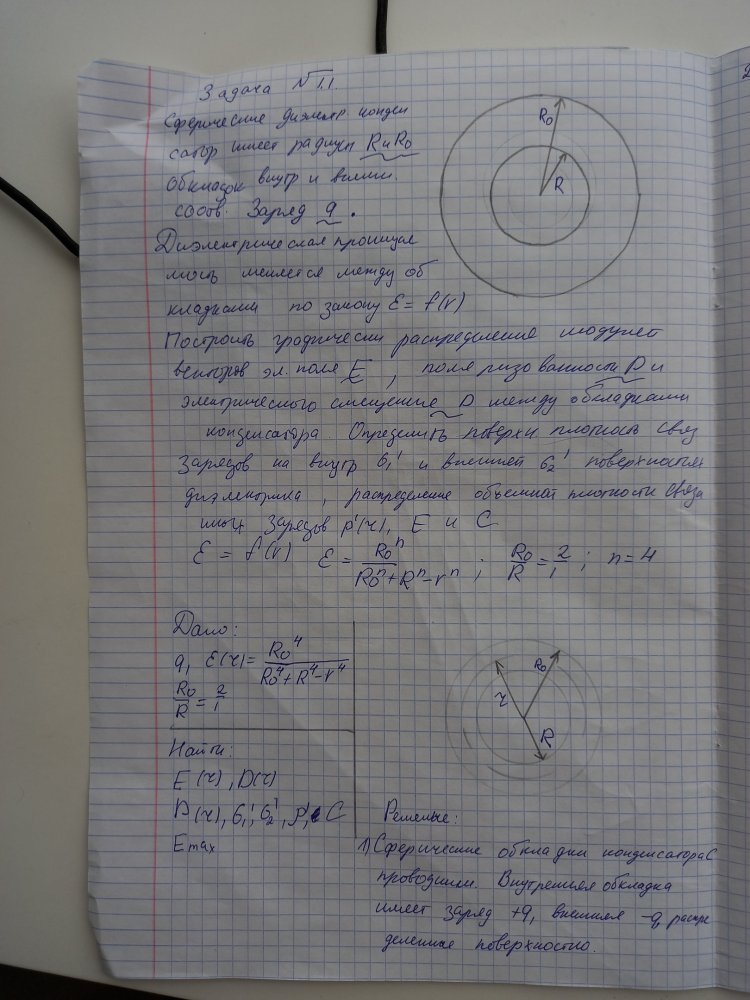 Задача №1.1.
Сферические диэлектр конден
сатор имеет радиусы R и R₀
обкладок внутр и внешн.
соотв. Заряд q.
R₀
R
Диэлектрическая проницае
мость меняется между об
кладками по закону ε = f(r)
Построить графически распределение модулей
векторов эл. поля E, поляризованности P и
электрического смещение D между обкладками
конденсатора. Определить поверхн плотность связ
зарядов на внутр σ₁' и внешней σ₂' поверхностях
диэлектрика, распределение объемной плотности связа
нных зарядов ρ'(r), E и C
ε = f(r) ε = R₀ⁿ/(R₀ⁿ+Rⁿ-rⁿ) ; R₀/R = 2/1 ; n=4
Дано:
q, ε(r) = R₀⁴/(R₀⁴+R⁴-r⁴)
R₀/R = 2/1
r
R₀
R
Найти:
E(r), D(r)
P(r), σ₁', σ₂', ρ', C
Emax
Решение:
1) Сферические обкладки конденсатора С
проводники. Внутренняя обкладка
имеет заряд +q, внешняя -q, распре
деленные поверхностно.